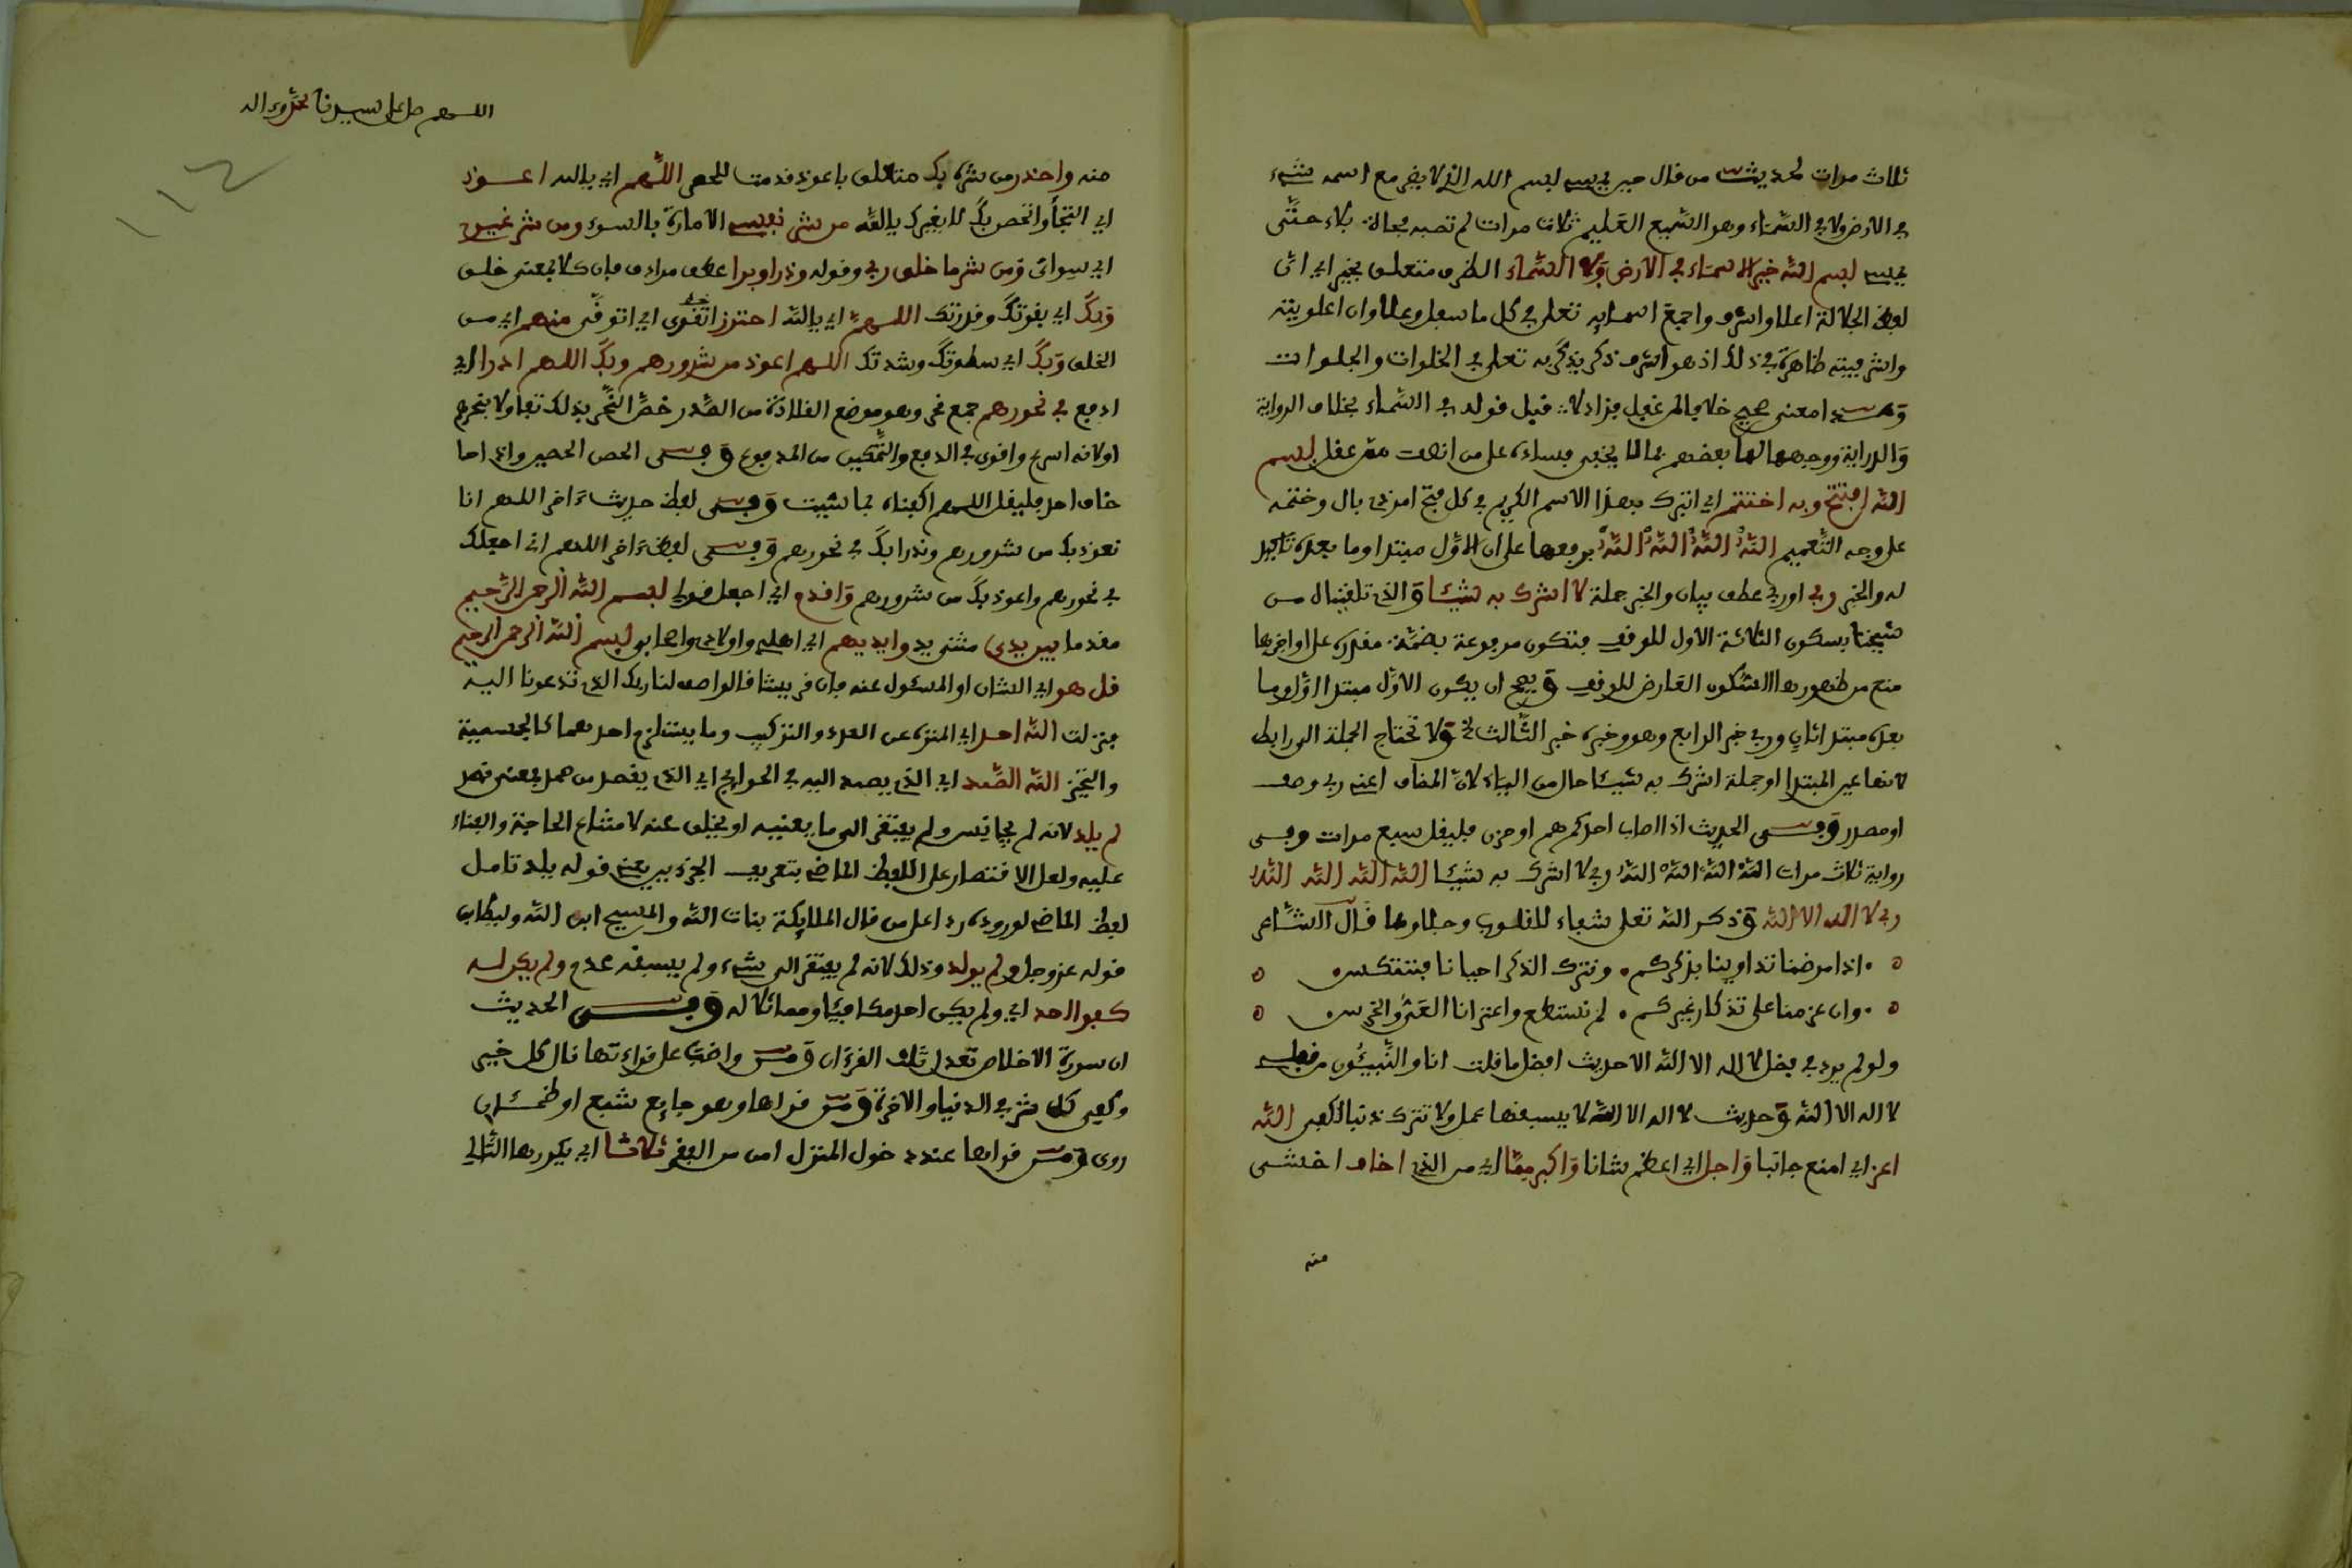 ثلاث مرات لحديث من قال حين يمسي بسم الله الذي لا يضر مع اسمه شيء
في الارض ولا في السماء وهو السميع العليم ثلاث مرات لم تصبه فجاة بلاء حتى
يمسي بسم الله خير الاسماء في الارض ولا السماء الظرف متعلق بخير اي ان
لفظ الجلالة اعلا واشرف واجمع اسمايه تعلى في كل ما سفل وعلا وان اعلويته
واشرفيته ظاهرة في ذلك اذ هو اشرف ذكر يذكر به تعلى في الخلوات والجلوات
امعنى صحيح خلافا لمن غفل فزاد لا قيل قوله في السماء بخلاف الرواية
والدراية ووجهها لها بعضهم بما لا يخفى فساده على من انصف ممن عقل بسم
الله افتتح وبه اختتم اي اتبرك بهذا الاسم الكريم في كل فتح امر ذي بال وختمه
على وجه التعميم الله الله الله الله برفعها على ان الاول مبتدا وما بعده تاكيد
له والخبر ربي او ربي عطف بيان والخبر جملة لا اشرك به شيئا والذي تلقينا من
شيخنا بسكون الثلاثة الاول للوقف فتكون مرفوعة بضمة مقدرة على اواخرها
منع من ظهورها السكون العارض للوقف ويصح ان يكون الاول مبتدا اول وما
بعده مبتدا ثان وربي خبر الرابع وهو وخبره خبر الثالث الخ ولا تحتاج الجملة الى رابط
لانها عين المبتدا او جملة اشرك به شيئا حال من الياء لان المضاف اعني ربي وصف
او مصدر وفي الحديث اذا اصاب احدكم هم او حزن فليقل سبع مرات وفي
رواية ثلاث مرات الله الله الله الله ربي لا اشرك به شيئا الله الله الله الله
ربي لا اله الا الله وذكر الله تعلى شفاء للقلوب وجلاوها قال الشاعر
اذا مرضنا تداوينا بذكركم ونترك الذكر احيانا فننتكس
وان عزمنا على تذكار غيركم لم نستطع واعترانا العي والخرس
ولو لم يرد في فضل لا اله الا الله الا حديث افضل ما قلت انا والنبيئون من قبلي
لا اله الا الله وحديث لا اله الا الله لا يسبقها عمل ولا تترك ذنبا لكفى الله
اعز اي امنع جانبا واجل اي اعظم شانا واكبر مما اي من الذي اخاف اخشى
منه
اللهم صل على سيدنا محمد وءاله
١١٤
منه واحذر من شره بك متعلق باعوذ قدمت للحصر اللهم اي يا الله اعوذ
اي التجا واتحصن بك لا بغيرك يا الله من شر نفسي الامارة بالسوء ومن شر غيري
اي سواي ومن شر ما خلق ربي وقوله وذرا وبرا عطف مرادف فان كلا بمعنى خلق
وبك اي بقوتك وقدرتك اللهم اي يا الله احترز اتقوى اي اتوقى منهم اي من
الخلق وبك اي سطوتك وشدتك اللهم اعوذ من شرورهم وبك اللهم ادرا اي
ادفع في نحورهم جمع نحر وهو موضع القلادة من الصدر خص النحر بذلك تفاولا بنحرهم
او لانه اسرع واقوى في الدفع والتمكين من المدفوع وفي الحصن الحصين واذا ما
خاف احد فليقل اللهم اكفناه بما شيت وفي لفظ حديث ءاخر اللهم انا
نعوذ بك من شرورهم وندرا بك في نحورهم وفي لفظ ءاخر اللهم اني اجعلك
في نحورهم واعوذ بك من شرورهم واقدم اي اجعل قولي بسم الله الرحمن الرحيم
مقدما بين يدي مثنى يد وايديهم اي اهلي واولادي واصحابي بسم الله الرحمن الرحيم
قل هو اي الشان او المسئول عنه فان قريشا قالوا صف لنا ربك الذي تدعونا اليه
فنزلت الله احد اي المنزه عن العدد والتركيب وما يستلزم احدهما كالجسمية
والتحيز الله الصمد اي الذي يصمد اليه في الحوايج اي الذي يقصد من صمد بمعنى قصد
لم يلد لانه لم يجانس ولم يفتقر الى ما يعينه او يخلف عنه لامتناع الحاجة والفناء
عليه ولعل الاقتصار على اللفظ الماضي بتعريف الجزءين يعني قوله يلد تامل
لفظ الماضي لوروده ردا على من قال الملايكة بنات الله والمسيح ابن الله وليطابق
قوله عز وجل ولم يولد وذلك لانه لم يفتقر الى شيء ولم يسبقه عدم ولم يكن له
كفوا احد اي ولم يكن احد مكافيا ومماثلا له وفي الحديث
ان سورة الاخلاص تعدل ثلث القرءان ومن واضب على قراءتها نال كل خير
وكفي كل شر في الدنيا والاخرة ومن قراها وهو جايع شبع او ظمئان
روى ومن قراها عند دخول المنزل امن من الفقر ثلاثا اي يكررها التالي